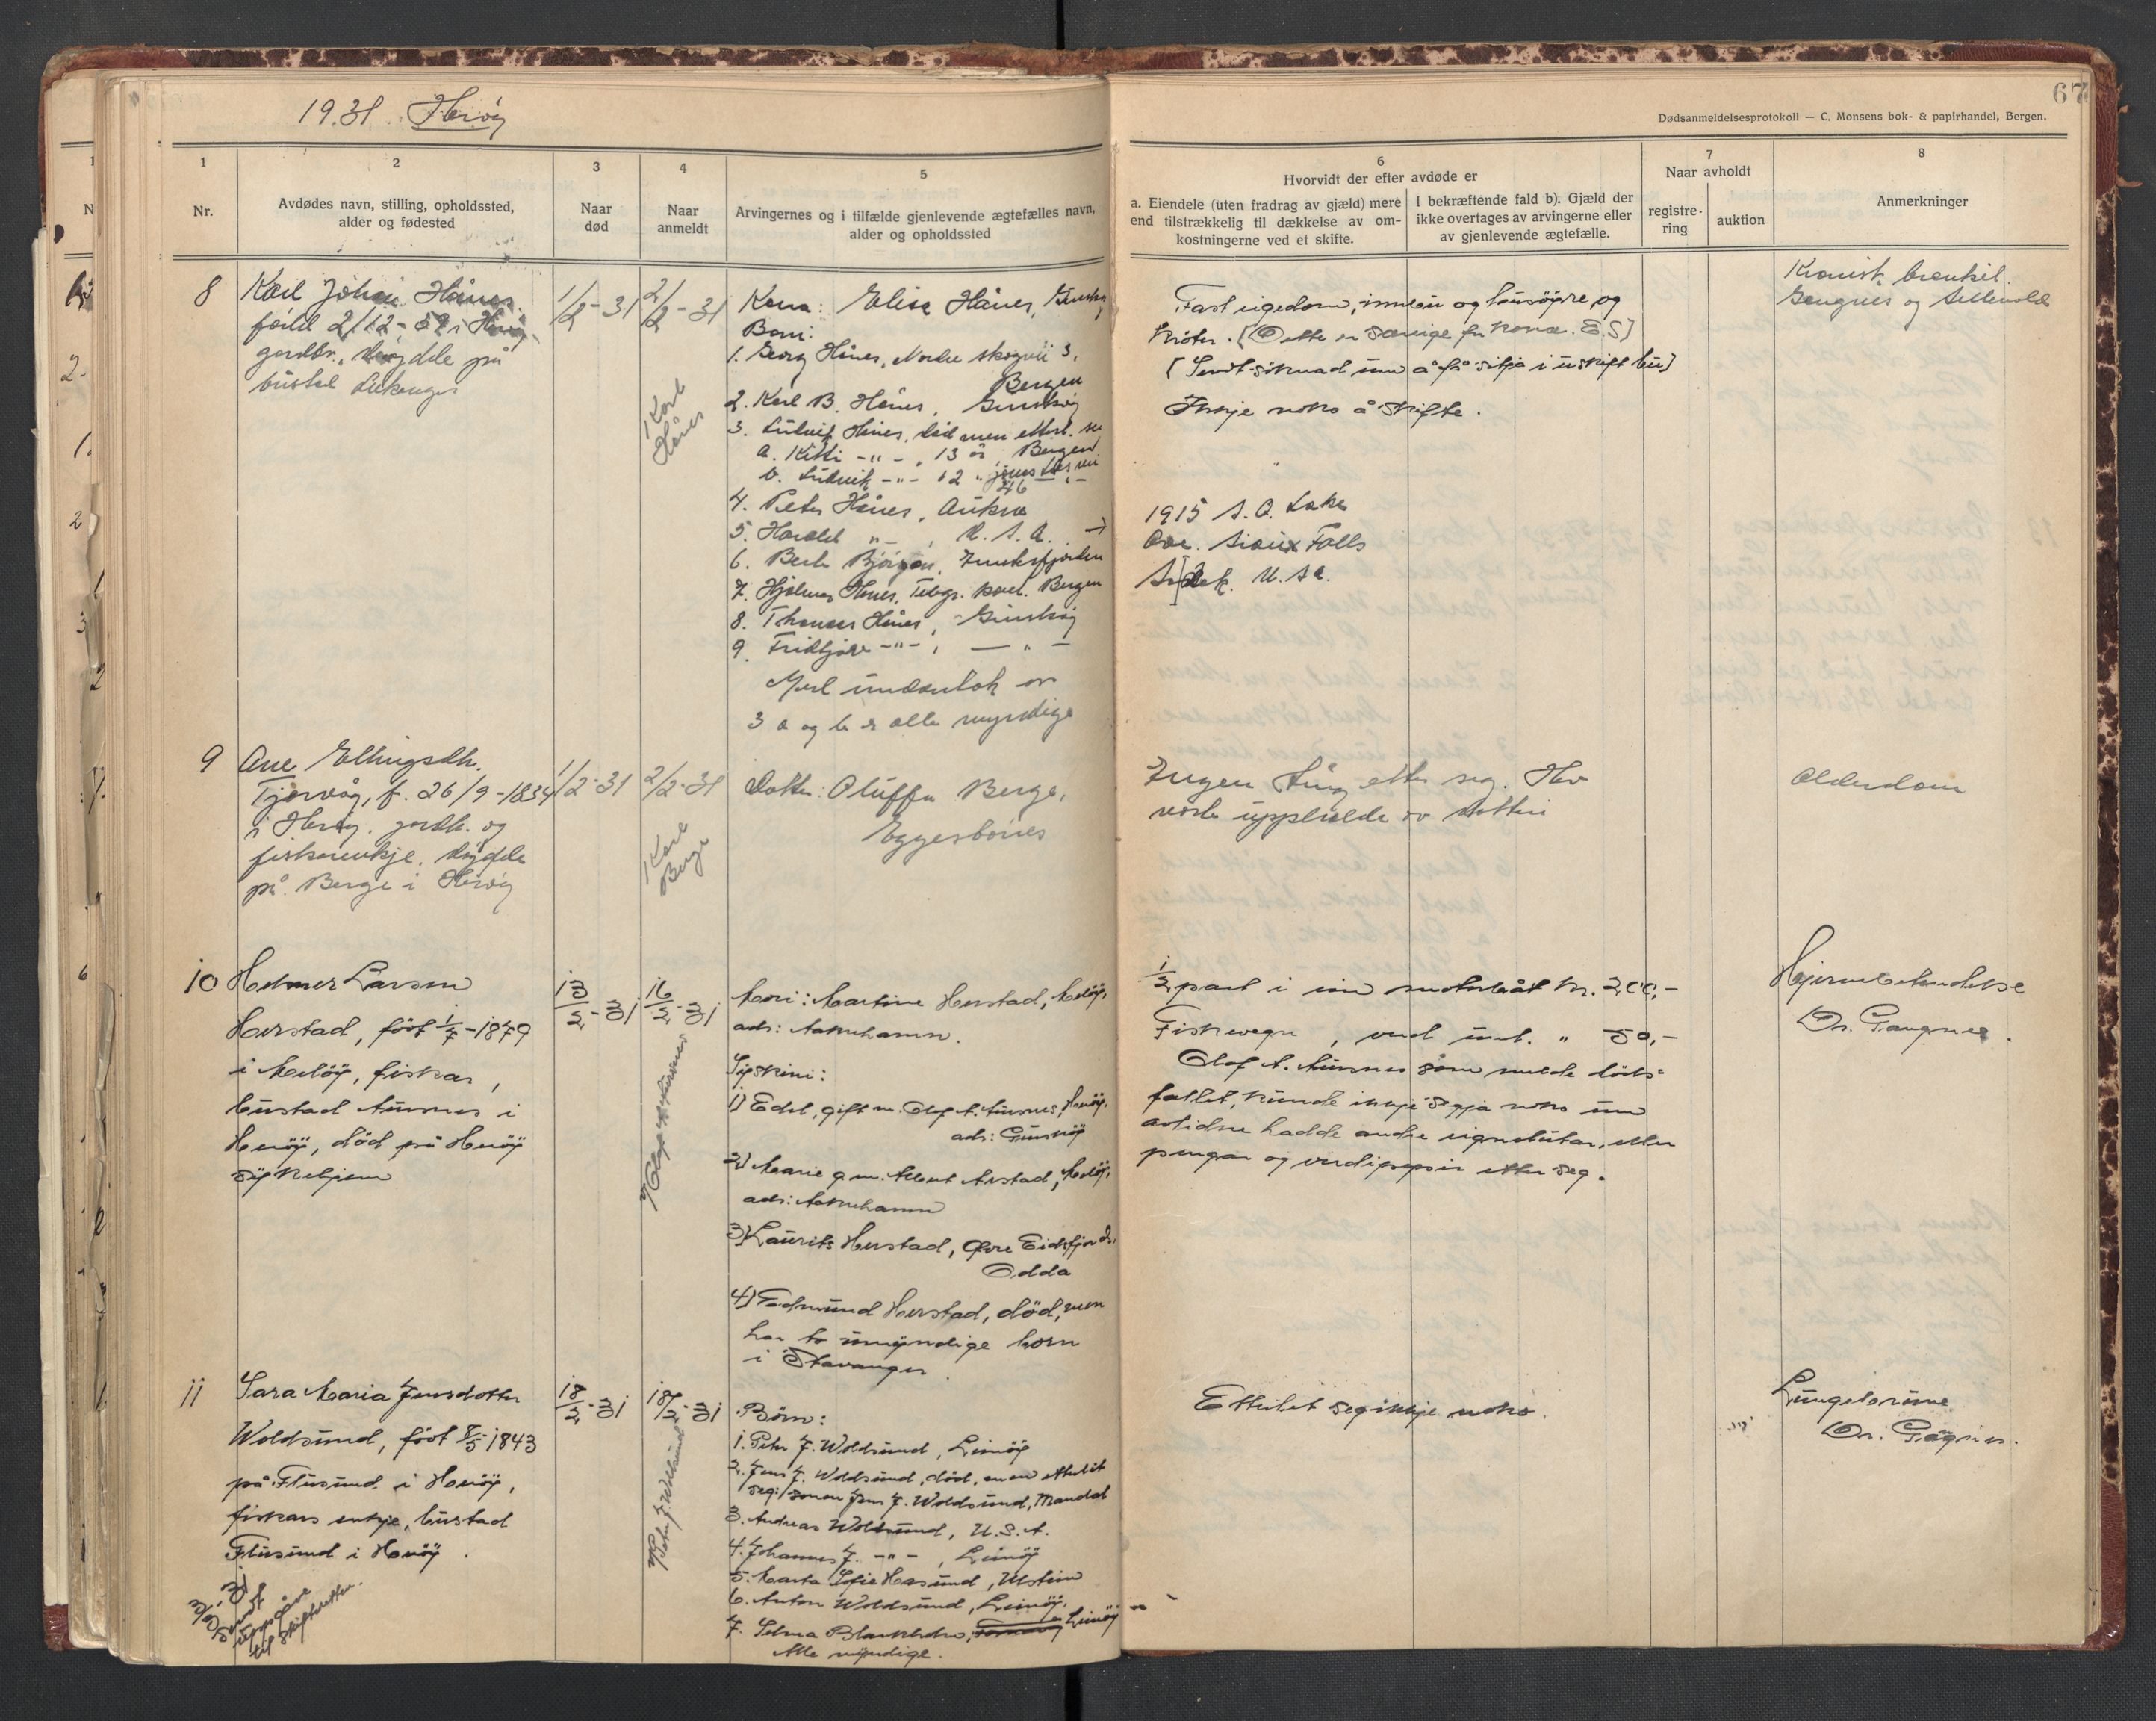 1931. Herøy
67
Dødsanmeldelsesprotokoll — C. Monsens bok- & papirhandel, Bergen.
1
Nr.
2
Avdødes navn, stilling, opholdssted,
alder og fødested
3
Naar
død
4
Naar
anmeldt
5
Arvingernes og i tilfælde gjenlevende ægtefælles navn,
alder og opholdssted
6
Hvorvidt der efter avdøde er
a. Eiendele (uten fradrag av gjæld) mere
end tilstrækkelig til dækkelse av om-
kostningerne ved et skifte.
I bekræftende fald b). Gjæld der
ikke overtages av arvingerne eller
av gjenlevende ægtefælle.
7
Naar avholdt
registre-
ring
auktion
8
Anmerkninger
8
Karl Johan Hånes
født 2/12-59 i Herøy
gardbr., døydde på
bustad
1/2-31
2/2-31
Karl
Hånes
Kona: Elise Hånes, Gurskøy
Born:
1. Georg Hånes, Nordre skogvei 3,
Bergen
2. Karl B. Hånes, Gurskøy
3. Ludvik Hånes, død men etterl. seg
a. Kitti -"- , 13 år, Bergen
b. Ludvik -"- 12 "
46
4. Peter Hånes, Aukra
5. Harald "- , U.S.A. →
6. Berta Bjørgan,
7. Hjalmar Hånes, Telegr. kont. Bergen
8. Thomas Hånes, Gurskøy
9. Fridtjov -"- , — " —
Med undantak av
3 a og b er alle myndige
Fast eigedom, innbu og lausøyre og
krøter. [Dette er særeige for kona. E.S]
[Sendt søknad um å få sitja i uskift bu]
Inkje noko å skifte.
1915 S. O. Lake
Ave. Sioux Falls
S. Dak. U.S.A.
Kronisk bronkit.
Gangnes og Sellevold
9
Ane Ellingsdtr.
Tjørvåg, f. 26/9-1834
i Herøy. gardbr. og
fiskarenkje, døydde
på Berge i Herøy
1/2-31
2/2-31
Kare
Berge
Dotter: Oluffa Berge,
Eggesbønes
Ingen ting etter seg. Hev
vorte uppheldt av dotteri
Alderdom
10
Helmer Larsen
Herstad, født 1/7-1879
i Meløy, fiskar,
bustad Aursnes i
Herøy, død på Herøy
sjykehjem
13/2-31
16/2-31
Mori: Martine Herstad, Meløy,
ads: Aakrehamn.
Syskini:
1) Edel, gift m. Olaf A. Aursnes, Herøy,
ads: Gurskøy
2) Marie g. m. Albert Arstad, Meløy,
ads: Aakrehamn
3) Laurits Herstad, Øvre Eidfjord,
Odda
4) Edmund Herstad, död, men
har to umyndige born
i Stavanger.
1/2 part i ein motorbåt kr. 200,-
Fiskevegn, verd umt. " 50,-
Olaf A. Aursnes som melde döds-
fallet, kunde inkje segja noko um
avlidne hadde andre eignelutar, eller
pengar og verdipapir etter seg.
Hjernebetendelse
Dr. Gangnes.
11
Sara Maria Jensdotter
Woldsund, føst 8/5-1843
på Flusund i Herøy,
fiskars enkje, bustad
Flusund i Herøy.
3/3-31
Sendt
uppgåve
til skifteretten.
18/2-31
18/2-31
Peter J. Woldsund
Börn:
1. Peter J. Woldsund, Leinøy
2. Jens J. Woldsund, död, men etterlét
seg: sonen Jens J. Woldsund, Mandal
3. Andreas Woldsund, U.S.A.
4. Johannes J. -"- , Leinøy
5. Marta Sofie Hasund, Ulstein
6. Anton Woldsund, Leinøy,
7. Selma Blankholm, Leinøy
Alle myndige.
Etterlét seg inkje noko.
Lungebetennelse